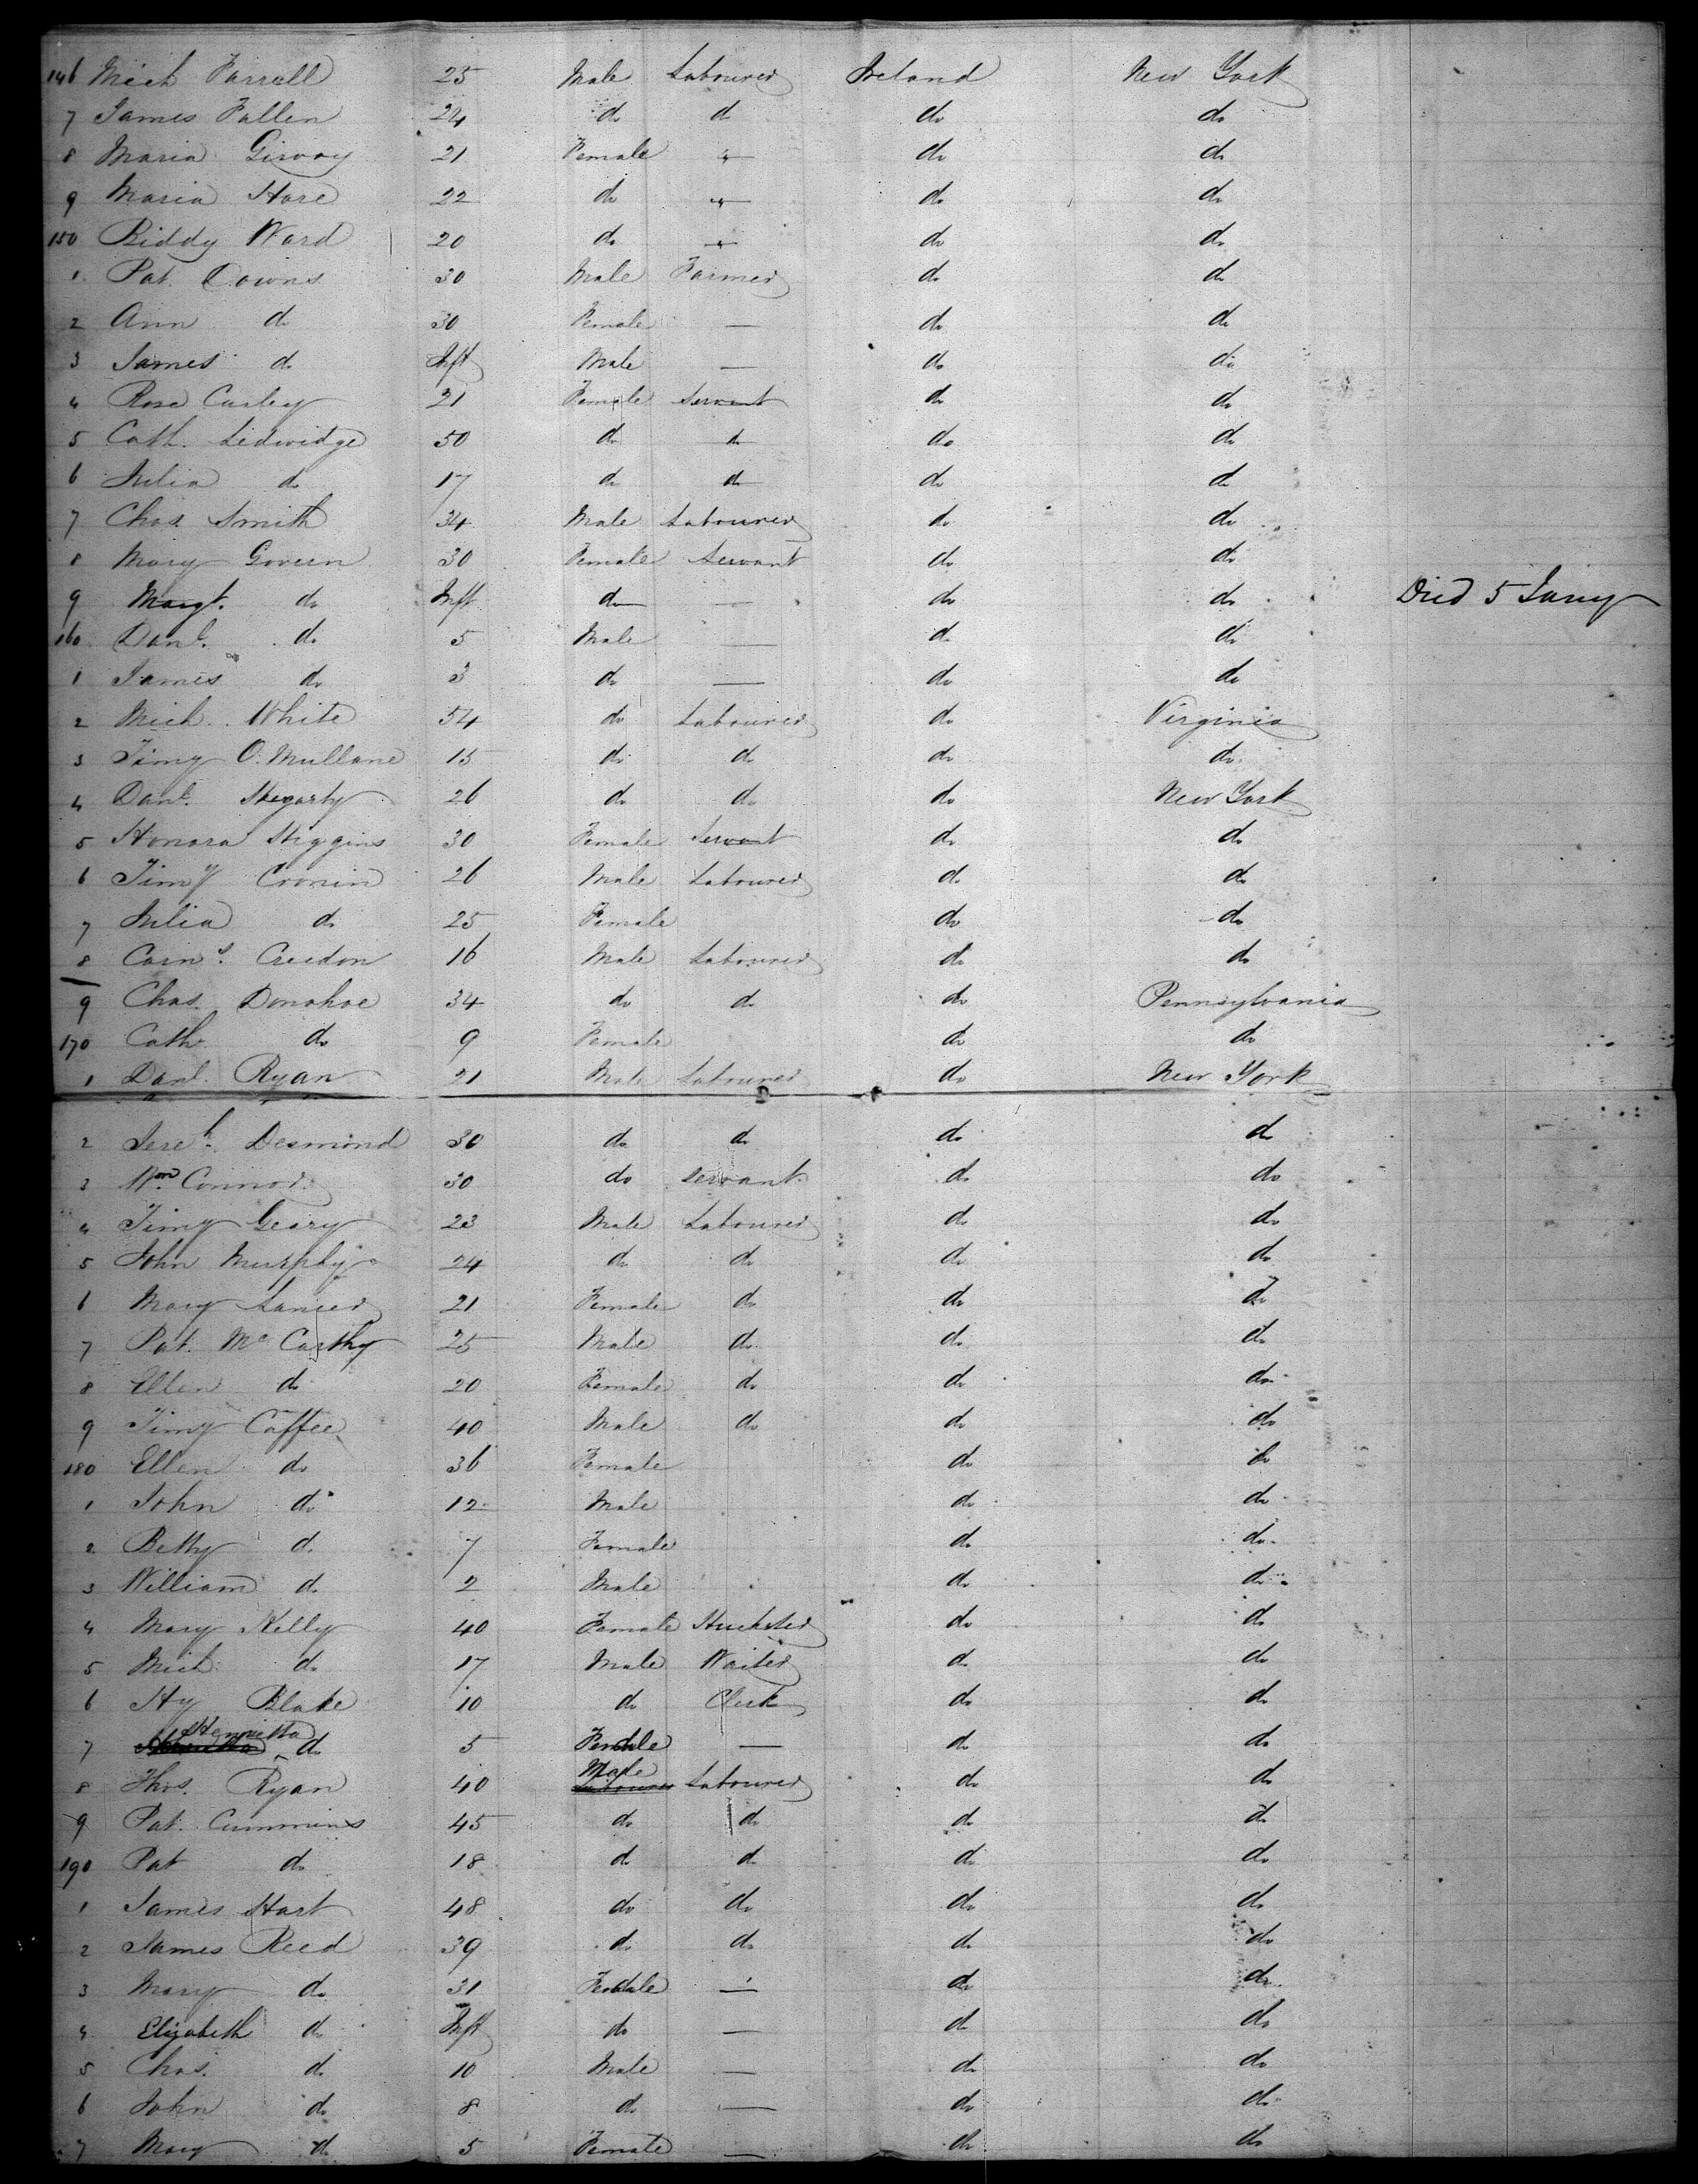 146 Mich Farrell 25 Male Labourer Ireland New York
7 James Fallen 24 do do do do
8 Maria Girvay 21 Female " do do
9 Maria Hare 22 do " do do
150 Biddy Ward 20 do " do do
1 Pat. Downs 30 Male Farmer do do
2 Ann do 30 Female — do do
3 James do Inft Male — do do
4 Rose Curley 21 Female Servant do do
5 Cath. Ledwidge 50 do do do do
6 Julia do 17 do do do do
7 Chas Smith 34 Male Labourer do do
8 Mary Govern 30 Female Servant do do
9 Margt. do Inft do — do do Died 5 Jany
160 Danl. do 5 Male — do do
1 James do 3 do — do do
2 Mich. White 54 do Labourer do Virginia
3 Timy O.Mullane 15 do do do do
4 Danl. Hegarty 26 do do do New York
5 Honora Higgins 30 Female Servant do do
6 Timy Cronin 26 Male Labourer do do
7 Julia do 25 Female do do
8 Corns. Creedon 16 Male Labourer do do
9 Chas. Donohoe 34 do do do Pennsylvania
170 Cath. do 9 Female do do
1 Danl. Ryan 21 Male Labourer do New York
2 Jereh. Desmond 30 do do do do
3 Wm Connor 30 do Servant do do
4 Timy Geary 23 Male Labourer do do
5 John Murphy 24 do do do do
6 Mary 21 Female do do do
7 Pat. McCarthy 25 Male do do do
8 Ellen do 20 Female do do do
9 Timy Coffee 40 Male do do do
180 Ellen do 36 Female do do
1 John do 12 Male do do
2 Betty do 7 Female do do
3 William do 2 Male do do
4 Mary Kelly 40 Female Huckster do do
5 Mich. do 17 Male Waiter do do
6 Hy Blake 10 do Clerk do do
7 Henrietta do 5 Female — do do
8 Thos. Ryan 40 Male Labourer do do
9 Pat. Cummins 45 do do do do
190 Pat do 18 do do do do
1 James Hart 48 do do do do
2 James Reed 39 do do do do
3 Mary do 31 Female — do do
4 Elizabeth do Inft do — do do
5 Chas. do 10 Male — do do
6 John do 8 do — do do
7 Mary do 5 Female — do do